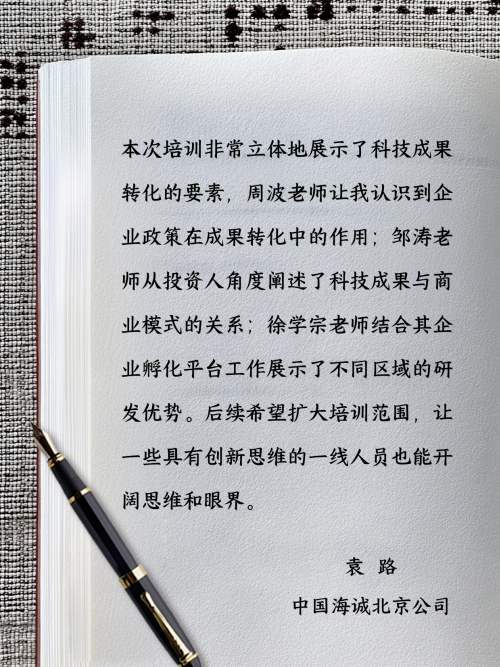 本次培训非常立体地展示了科技成果
转化的要素，周波老师让我认识到企
业政策在成果转化中的作用；邹涛老
师从投资人角度阐述了科技成果与商
业模式的关系；徐学宗老师结合其企
业孵化平台工作展示了不同区域的研
发优势。后续希望扩大培训范围，让
一些具有创新思维的一线人员也能开
阔思维和眼界。
袁 路
中国海诚北京公司